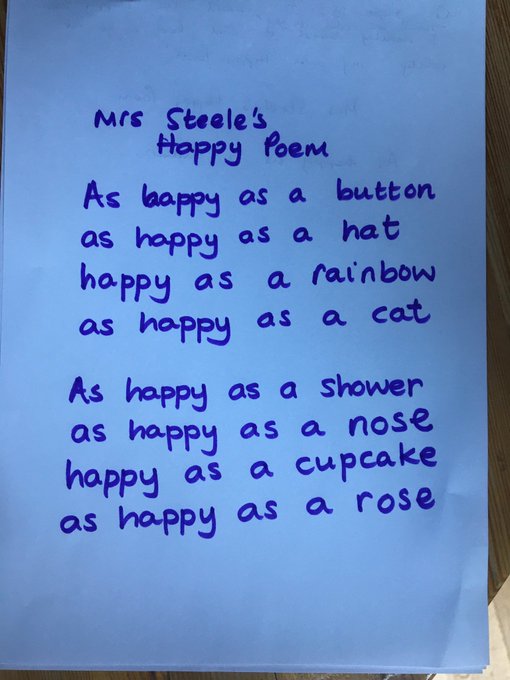 Mrs Steele's
Happy Poem
As happy as a button
as happy as a hat
happy as a rainbow
as happy as a cat
As happy as a shower
as happy as a nose
happy as a cupcake
as happy as a rose